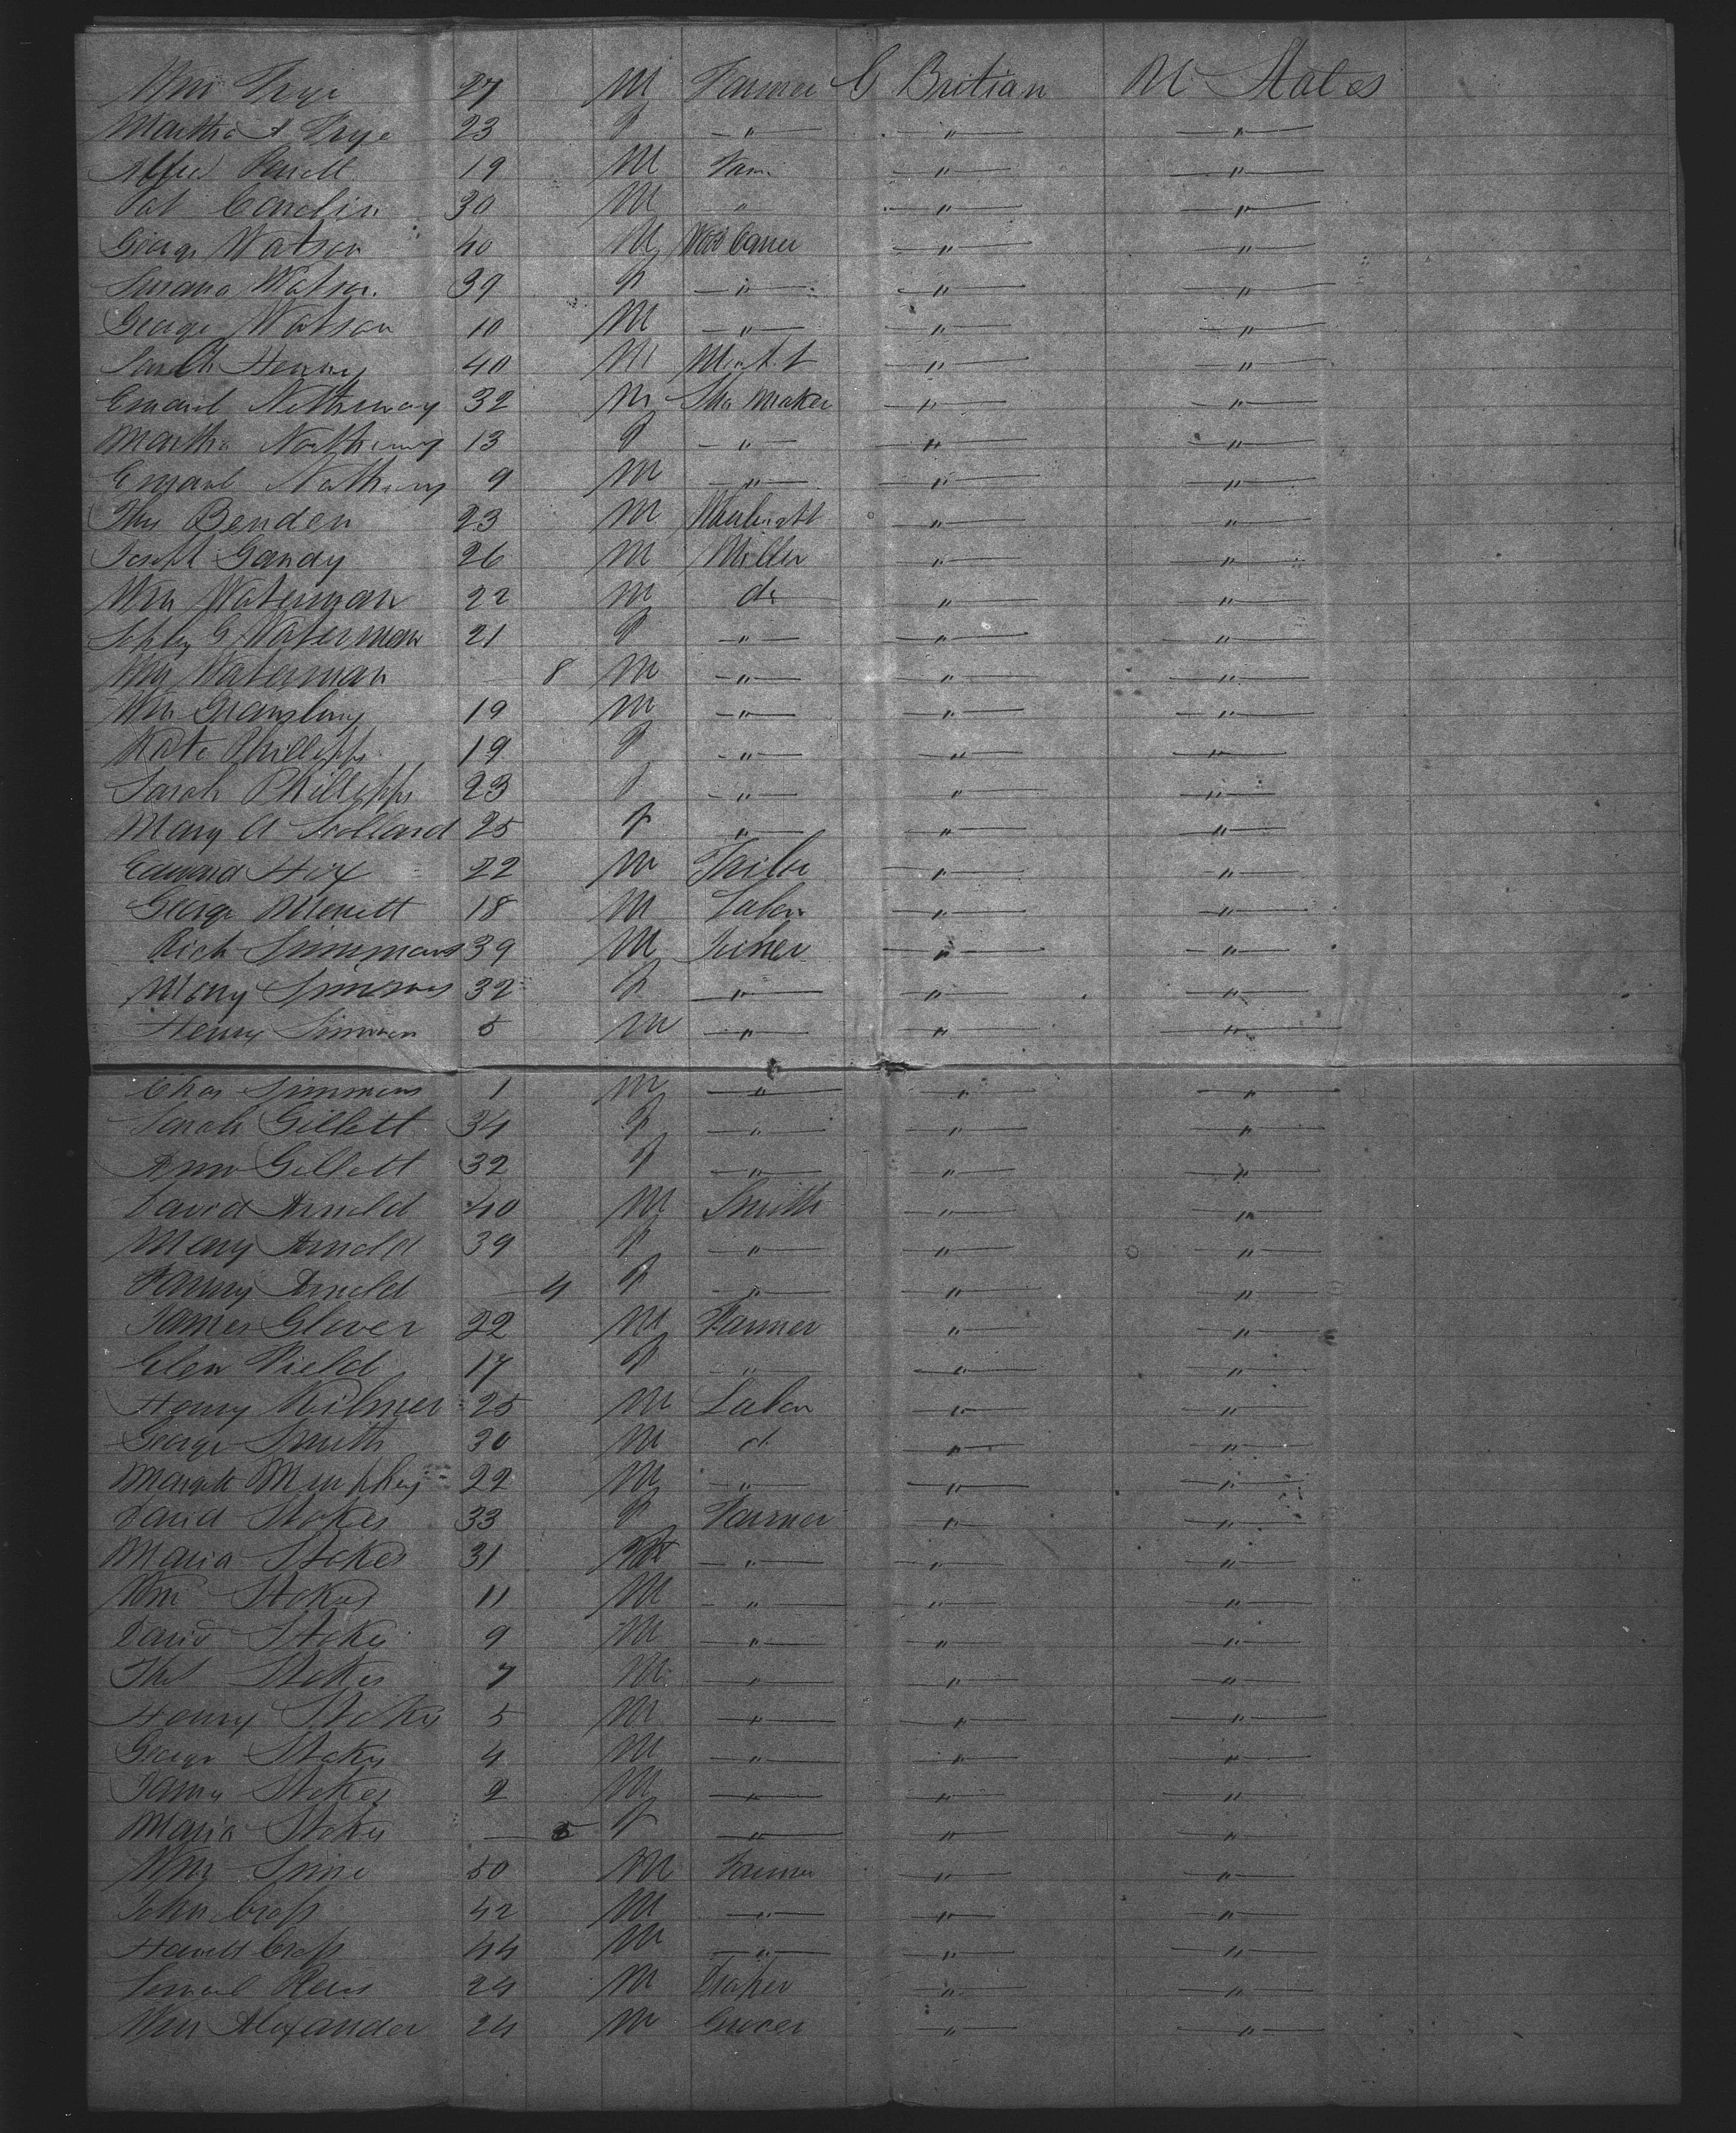 Wm Frye 27 M Farmer G Britian U States
Martha A Frye 23 F — " — — " — — " —
Alfred 19 M Farm — " — — " —
Pat Carolin 30 M " — " — — " —
George Watson 40 M — " — — " —
Susana Watson 39 F — " — — " — — " —
George Watson 10 M — " — — " — — " —
Sarah Henny 40 M — " — — " —
Emanl Notheway 32 M Sho Maker — " — — " —
Martha 13 F — " — — " — — " —
Emanl 9 M — " — — " — — " —
Thos Benden 23 M — " — — " —
Joseph Gandy 26 M Miller — " — — " —
Wm Waterman 22 M do — " — — " —
G Waterman 21 F — " — — " — — " —
Wm Waterman — 8 M — " — — " — — " —
Wm 19 M — " — — " — — " —
Kate Phillipps 19 F — " — — " — — " —
Sarah Phillipps 23 F — " — — " — — " —
Mary A Scollard 25 F — " — — " — — " —
Edward Hix 22 M — " — — " —
George Merrett 18 M Labor — " — — " —
Rich Simmons 39 M — " — — " —
Mary Simmons 32 F — " — — " — — " —
Henry Simmon 5 M — " — — " — — " —
Chas Simmons 1 M — " — — " — — " —
Sarah Gillett 34 F — " — — " — — " —
Ann Gillett 32 F — " — — " — — " —
David Arnold 40 M Smith — " — — " —
Mary Arnold 39 F — " — — " — — " —
Fanny Arnold — 4 F — " — — " — — " —
James Glover 22 M Farmer — " — — " —
Elen Field 17 F — " — — " — — " —
Henry Kilmer 25 M Labor — " — — " —
George Smith 30 M d. — " — — " —
Margtt Murphey 22 M — " — — " — — " —
David Stokes 33 F Farmer — " — — " —
Maria Stokes 31 — " — — " — — " —
Wm Stokes 11 M — " — — " — — " —
David Stokes 9 M — " — — " — — " —
Thos Stokes 7 M — " — — " — — " —
Henry Stokes 5 M — " — — " — — " —
George Stokes 4 M — " — — " — — " —
Stokes 2 M — " — — " — — " —
Maria Stokes — 5 F — " — — " — — " —
Wm 50 M Farmer — " — — " —
John Cross 42 M — " — — " — — " —
Cross 44 M — " — — " — — " —
Samuel Rees 24 M Draper — " — — " —
Wm Alexander 24 M Grocer — " — — " —